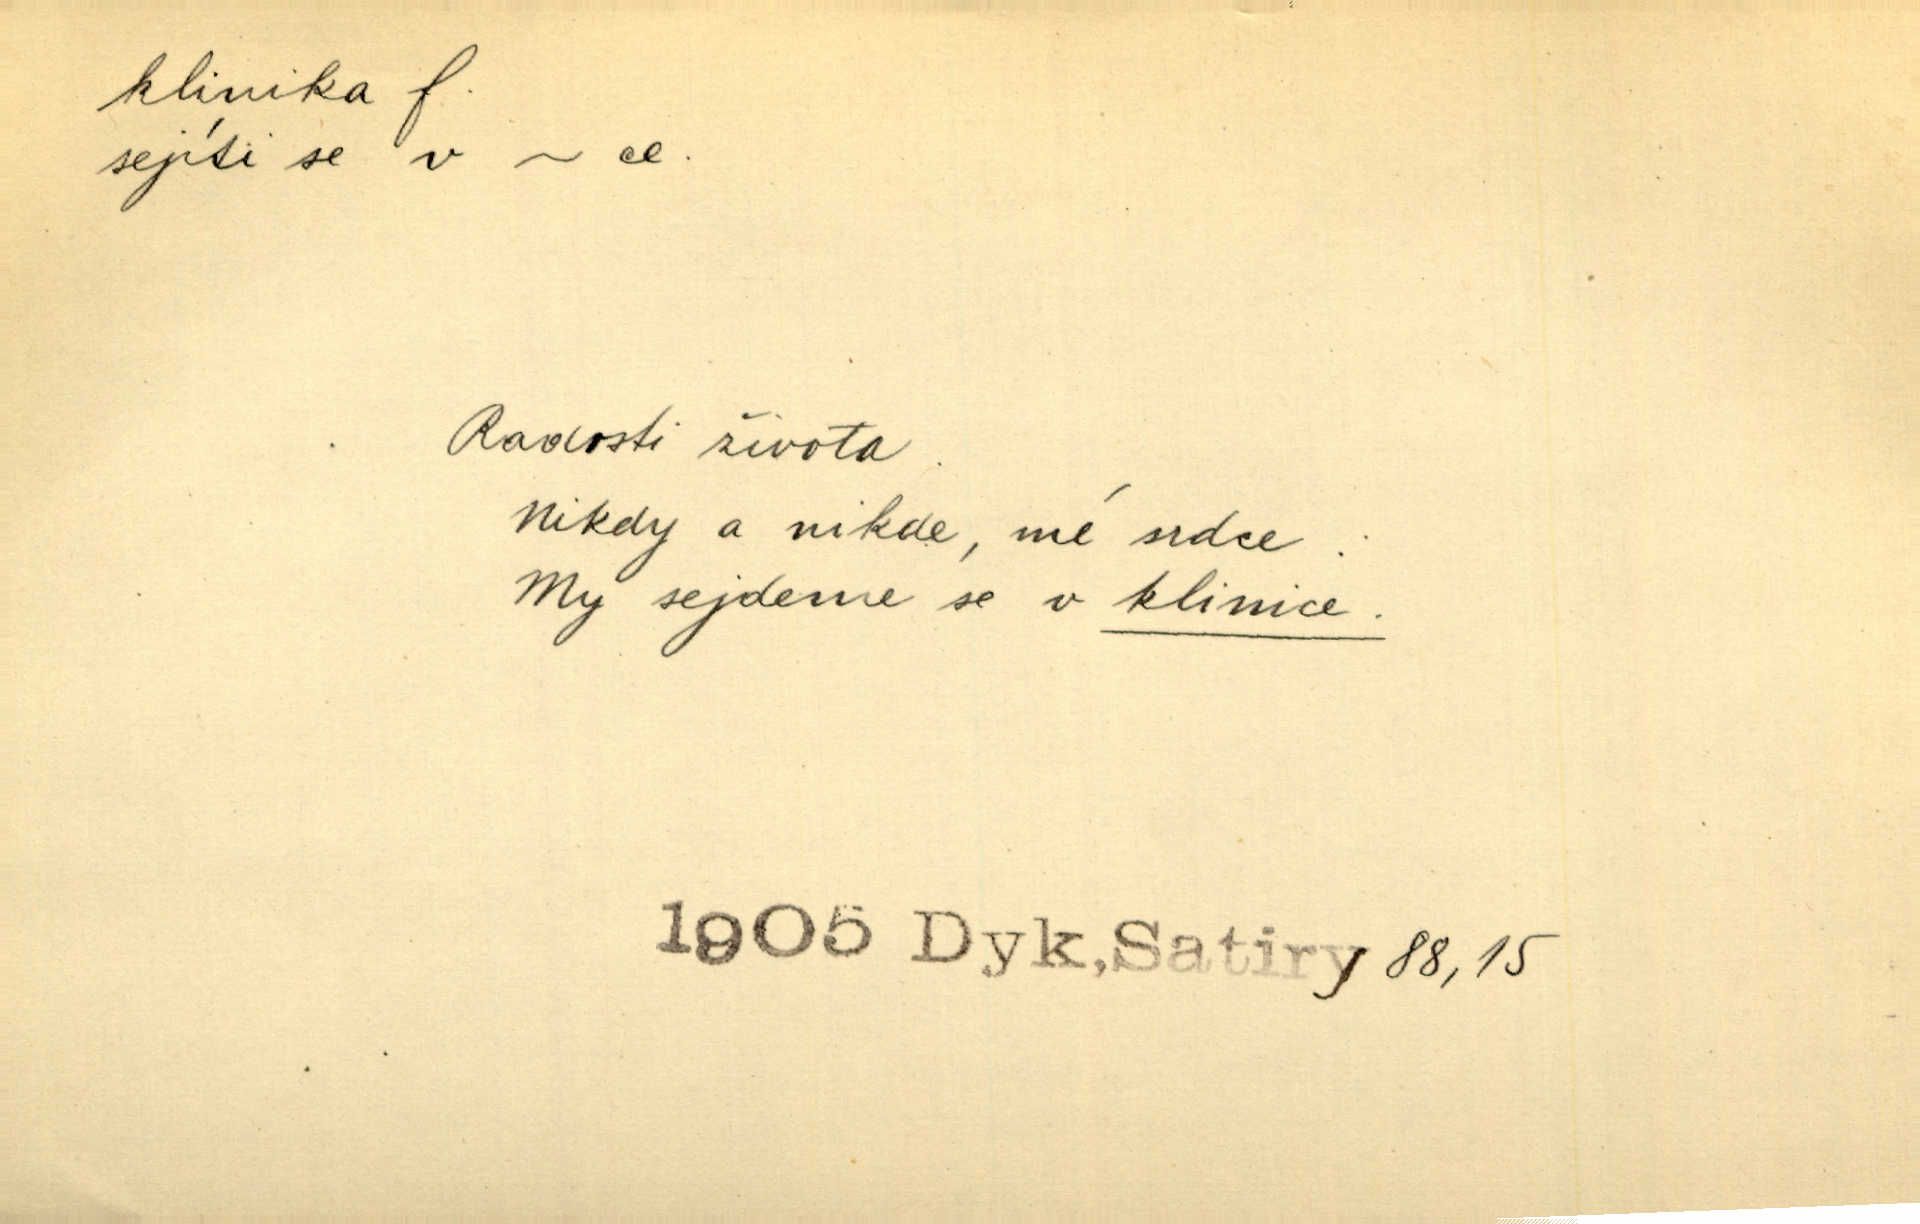 klinika f.
sejíti se v ~ ce.
Radosti života.
Nikdy a nikde, mé srdce:
My sejdeme se v klinice.
1905 Dyk, Satiry 88,15